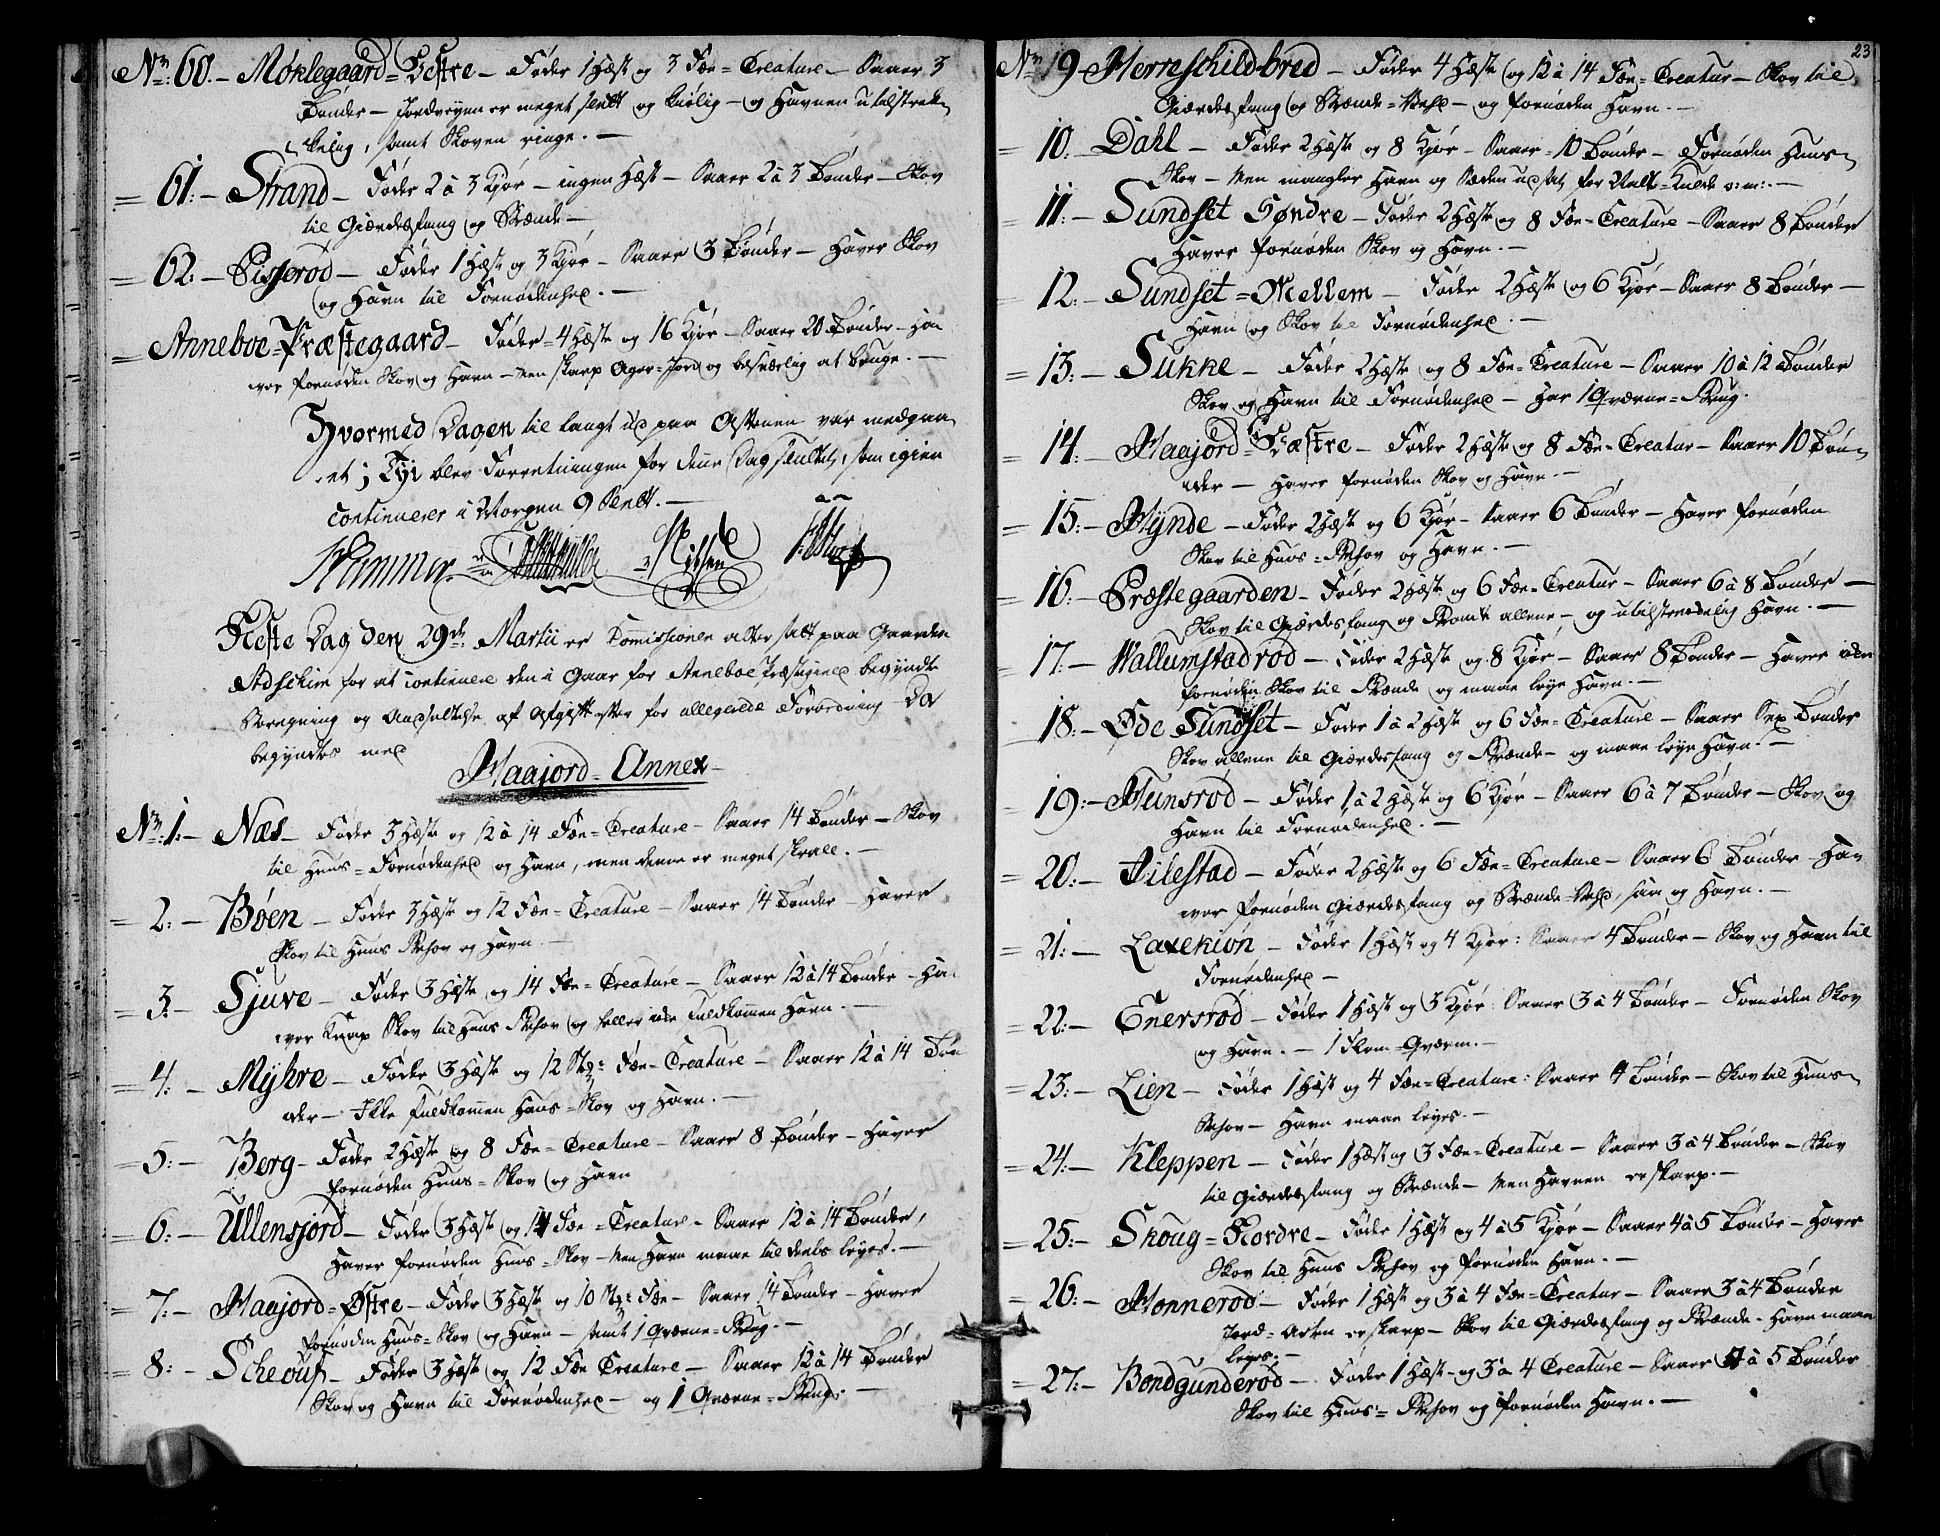 No. 60. – Moklegaard = Vestre – Føder 1 Hæst og 3 Fæ = Creature – Saaer 3
Tønder – Jordveyen er meget slett og kiølig – og Havnen utilstræk=
kelig, samt Skoven ringe. –
= 61. – Strand – Føder 2 à 3 Kjør – ingen Hæst – Saaer 2 à 3 Tønder – Skov
til Giærdesfang og Brænde –
= 62. – Sisserød – Føder 1 Hæst og 3 Kjør – Saaer 3 Tønder – Haver Skov
og Havn til Fornødenhed. –
= Anneboe = Præstegaard – Føder 4 Hæste og 16 Kjør – Saaer 20 Tønder – Ha=
ver fornøden Skov og Havn – Men skarp Ager = Jord og besværlig at bruge. –
Hvormed Dagen til langt ud paa Aftenen var medgaa=
et, Thi blev Forretningen for denne Dag sluttet, som igien
continuerer i Morgen 9 Slett. –
Wammer. Nissen
Neste Dag den 29de Martii er Commissionen atter satt paa Gaarden
Adschim for at continuere den i Gaar for Anneboe Præstegield begyndte
Beregning og Ansættelse af Afgift efter for allegerede Forordning – Da
begyndtes med
Waajord = Annex –
No. 1. – Næs – Føder 3 Hæste og 12 à 14 Fæ = Creature – Saaer 14 Tønder – Skov
til Huus = Fornødenhed og Havn, men denne er meget skrall. –
= 2. – Bøen – Føder 3 Hæste og 12 Fæ = Creature – Saaer 14 Tønder – Haver
Skov til Huus Behov og Havn. –
= 3. – Sjuve – Føder 3 Hæste og 14 Fæ = Creature – Saaer 12 à 14 Tønder – Ha=
ver Knap Skov til Huus Behov og heller icke Fuldkommen Havn. –
= 4. – Myhre – Føder 3 Hæste og 12 Stkr Fæ = Creature – Saaer 12 à 14 Tøn=
der – Ikke fuldkommen Huus = Skov og Havn. –
= 5. – Berg – Føder 2 Hæste og 8 Fæ = Creature – Saaer 8 Tønder – Haver
fornøden Huus = Skov og Havn
= 6. – Ullensjord – Føder 3 Hæste og 14 Fæ = Creature – Saaer 12 à 14 Tønder,
Haver fornøden Huus = Skov – Men Havn maae til deels leyes. –
= 7. – Waajord = Østre – Føder 3 Hæste og 10 Stkr Fæ – Saaer 14 Tønder – Haver
fornøden Huus = Skov og Havn – samt 1 Qværne = Brug. –
= 8. – Scheouf – Føder 3 Hæste og 12 Fæ Creature – Saaer 12 à 14 Tønder
Skov og Havn til Fornødenhed – og 1 Qværne = Brug. –
23
No. 9 – Herreschildbred – Føder 4 Hæste og 12 à 14 Fæ = Creatur – Skov til
Giærdesfang og Brænde = Vehd – og fornøden Havn. –
= 10. – Dahl – Føder 2 Hæste og 8 Kjør – Saaer = 10 Tønder – Fornøden Huus=
Skov – Men mangler Havn og Sæden udsatt for Natte = Kulde v: m: –
= 11. – Sundset Søndre – Føder 2 Hæste og 8 Fæ = Creature – Saaer 8 Tønder
Haver fornøden Skov og Havn. –
= 12. – Sundset = Mellem – Føder 2 Hæste og 6 Kjør – Saaer 8 Tønder –
Havn og Skov til Fornødenhed. –
= 13. – Sukke – Føder 2 Hæste og 8 Fæ = Creature – Saaer 10 à 12 Tønder
Skov og Havn til Fornødenhed – Har 1 Qværne = Brug.
= 14. – Waajord = Væstre – Føder 2 Hæste og 8 Fæ = Creatur – Saaer 10 Tøn=
der – Haver fornøden Skov og Havn. –
= 15. – Mynde – Føder 2 Hæste og 6 Kjør – Saaer 6 Tønder – Haver fornøden
Skov til Huus = Behov og Havn. –
= 16. – Præstegaarden – Føder 2 Hæste og 6 Fæ = Creatur – Saaer 6 à 8 Tønder –
Skov til Giærdesfang og Brænde allene – og utilstrækkelig Havn. –
= 17. – Wallumstadrød – Føder 2 Hæste og 8 Kjør – Saaer 8 Tønder – Haver icke
fornøden Skov til Brænde og maae leye Havn. –
= 18. – Øde Sundset – Føder 1 à 2 Hæste og 6 Fæ = Creature – Saaer Sex Tønder
Skov allene til Giærdesfang og Brænde – og maae leye Havn. –
= 19. – Meinsrød – Føder 1 à 2 Hæste og 6 Kjør – Saaer 6 à 7 Tønder – Skov og
Havn til Fornødenhed. –
= 20. – Jilestad – Føder 2 Hæste og 6 Fæ = Creature – Saaer 6 Tønder – Ha=
ver fornøden Giærdesfang og Brænde = Vehd, saa og Havn. –
= 21. – Laxekiøn – Føder 1 Hæst og 4 Kjør: Saaer 4 Tønder – Skov og Havn til
Fornødenhed –
= 22. – Enersrød – Føder 1 Hæst og 3 Kjør: Saaer 3 à 4 Tønder – Fornøden Skov
og Havn. – 1 Flom = Qværn. –
= 23. – Lien – Føder 1 Hæst og 4 Fæ = Creature: Saaer 4 Tønder – Skov til Huus=
Behov – Havn maae leyes. –
= 24. – Kleppen – Føder 1 Hæst og 3 Fæ = Creature – Saaer 3 à 4 Tønder – Skov
til Giærdesfang og Brænde – Men Havnen er skarp. –
= 25. – Skoug = Nordre – Føder 1 Hæst og 4 à 5 Kjør – Saaer 4 à 5 Tønder – Haver
Skov til Huus Behov og fornøden Havn. –
= 26. – Monnerød – Føder 1 Hæst og 3 à 4 Fæ = Creatur – Saaer 3 à 4 Tønder
Jord = Arten er skarp – Skov til Giærdesfang og Brænde – Havn maae
leyes. –
= 27. – Bondgunderød – Føder 1 Hæst og 3 à 4 Creature – Saaer 4 à 5 Tønder
Skov til Huus = Behov og fornøden Havn. –